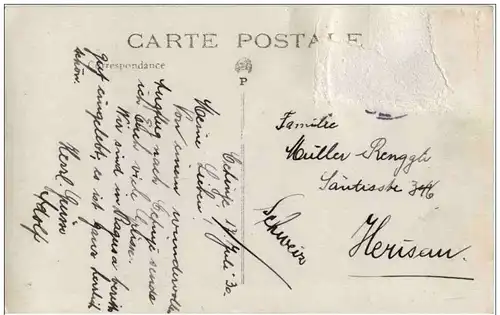 CARTE POSTALE
Correspondance
Cetinje 17 Juli 30.
Meine Lieben!
Von einem wundervollen
Ausflug nach Cetinje sende
ich Euch viele Grüsse.
Wir sind in Ragusa bereits
gut eingelebt, es ist ganz herrlich
schön.
Herzl.
Adolf
Familie
Müller-Renggli
Säntisstr
Herisau.
Schweiz